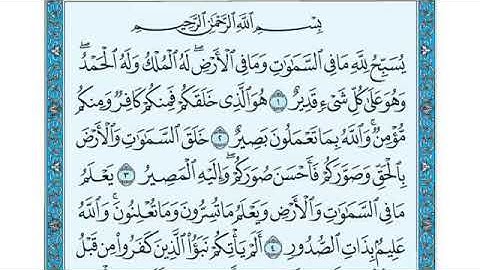 بِسْمِ ٱللَّهِ ٱلرَّحْمَٰنِ ٱلرَّحِيمِ
يُسَبِّحُ لِلَّهِ مَا فِى ٱلسَّمَٰوَٰتِ وَمَا فِى ٱلْأَرْضِۖ لَهُ ٱلْمُلْكُ وَلَهُ ٱلْحَمْدُۖ
وَهُوَ عَلَىٰ كُلِّ شَىْءٍ قَدِيرٌ ١ هُوَ ٱلَّذِى خَلَقَكُمْ فَمِنكُمْ كَافِرٌ وَمِنكُم
مُّؤْمِنٌۚ وَٱللَّهُ بِمَا تَعْمَلُونَ بَصِيرٌ ٢ خَلَقَ ٱلسَّمَٰوَٰتِ وَٱلْأَرْضَ
بِٱلْحَقِّ وَصَوَّرَكُمْ فَأَحْسَنَ صُوَرَكُمْۖ وَإِلَيْهِ ٱلْمَصِيرُ ٣ يَعْلَمُ
مَا فِى ٱلسَّمَٰوَٰتِ وَٱلْأَرْضِ وَيَعْلَمُ مَا تُسِرُّونَ وَمَا تُعْلِنُونَۚ وَٱللَّهُ
عَلِيمٌۢ بِذَاتِ ٱلصُّدُورِ ٤ أَلَمْ يَأْتِكُمْ نَبَؤُا۟ ٱلَّذِينَ كَفَرُوا۟ مِن قَبْلُ